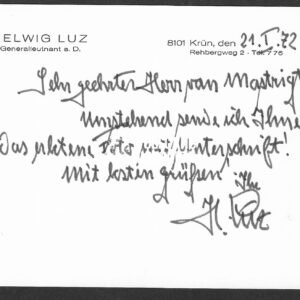 ELWIG LUZ
Generalleutnant a. D.
8101 Krün, den 21.I.72
Rehbergweg 2 - Tel. 776
Sehr geehrter Herr van Mastrigt
Umgehend sende ich Ihne
Das erbetene Foto mit Unterschrift!
Mit besten Grüßen, Ihr
H. Luz